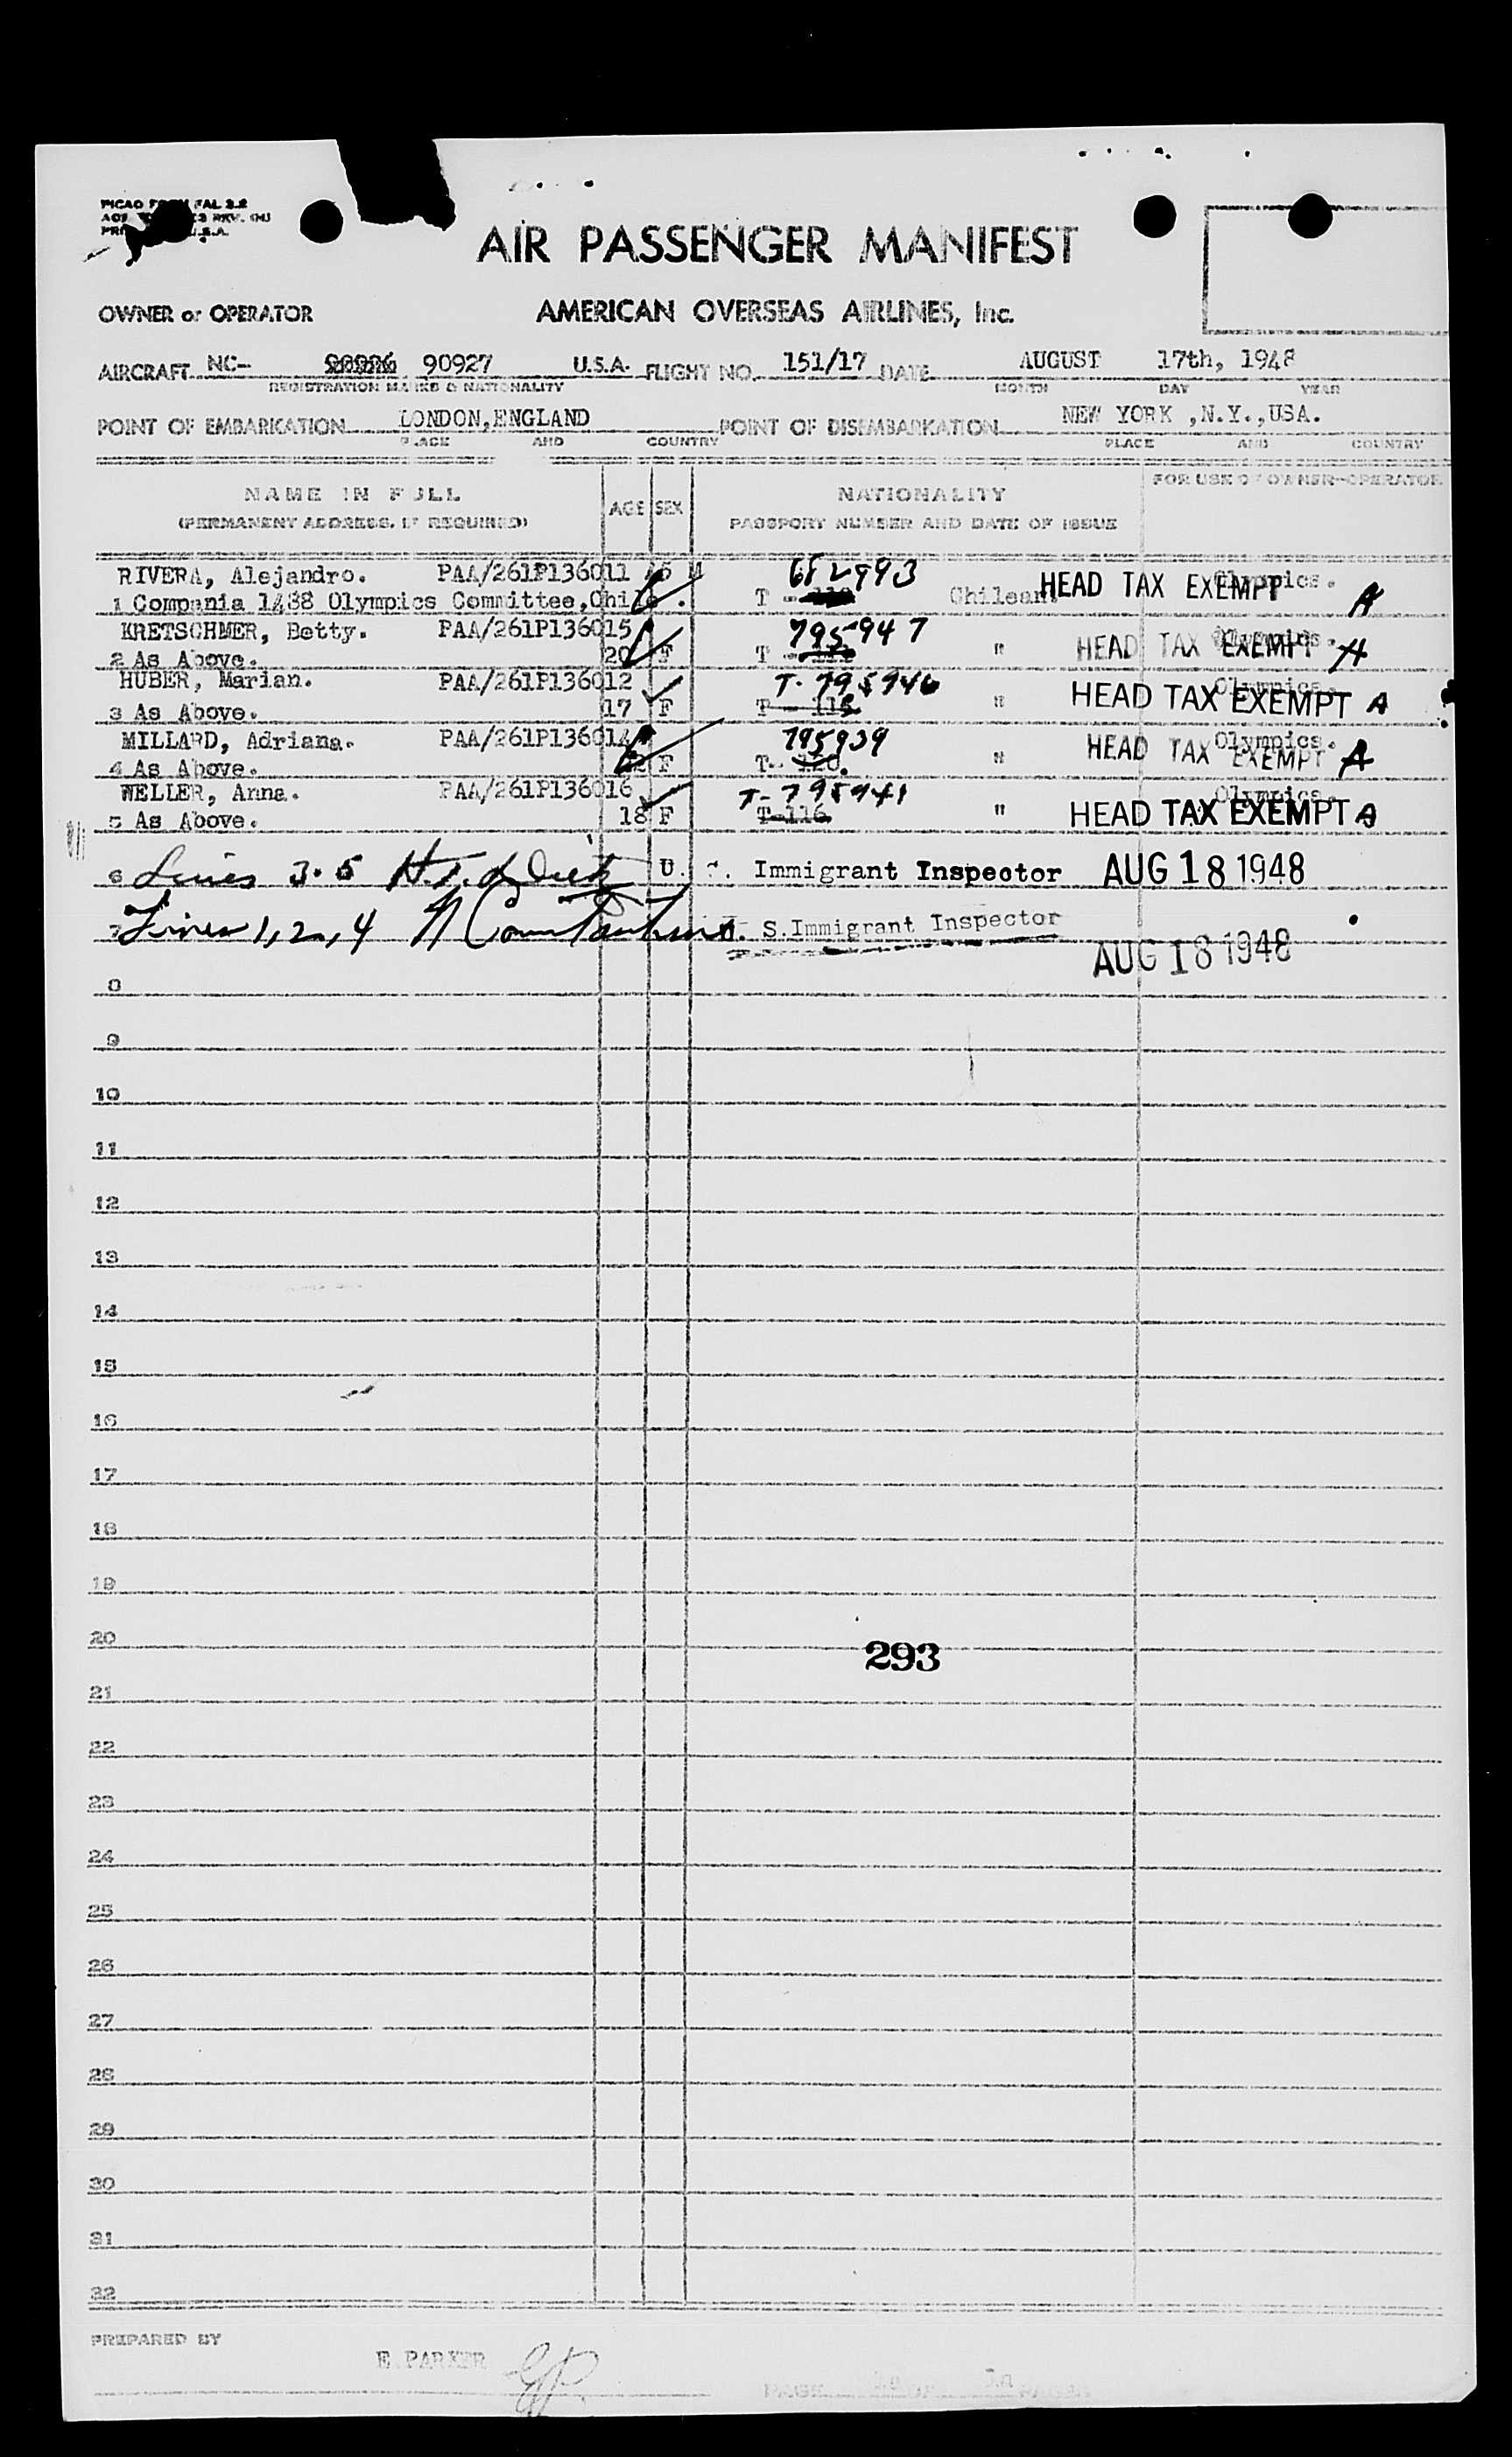 AIR PASSENGER MANIFEST
OWNER or OPERATOR AMERICAN OVERSEAS AIRLINES, Inc.
AIRCRAFT NC- 90926 90927 U.S.A. FLIGHT NO. 151/17 DATE AUGUST 17th, 1948
REGISTRATION MARKS & NATIONALITY MONTH DAY YEAR
POINT OF EMBARKATION LONDON,ENGLAND POINT OF DISEMBARKATION NEW YORK ,N.Y.,USA.
PLACE AND COUNTRY PLACE AND COUNTRY
NAME IN FULL AGE SEX NATIONALITY FOR USE OF OWNER-OPERATOR
(PERMANENT ADDRESS, IF REQUIRED) PASSPORT NUMBER AND DATE OF ISSUE
RIVERA, Alejandro. PAA/261P136011 M 682993 Olympics.
1 Compania 1488 Olympics Committee,Chile. T - Chilean. HEAD TAX EXEMPT A
KRETSCHMER, Betty. PAA/261P136015 795947 Olympics.
2 As Above. 20 F T - " HEAD TAX EXEMPT A
HUBER, Marian. PAA/261P136012 T-795946 Olympics.
3 As Above. 17 F T - 118 " HEAD TAX EXEMPT A
MILLARD, Adriana. PAA/261P136014 795939 Olympics.
4 As Above. F T- 120. " HEAD TAX EXEMPT A
WELLER, Anna. PAA/261P136016 T-795941 Olympics.
5 As Above. 18 F T-116 " HEAD TAX EXEMPT A
6 Lines 3-5 U. S. Immigrant Inspector AUG 18 1948
7 Lines 1,2,4 U. S. Immigrant Inspector
AUG 18 1948
8
9
10
11
12
13
14
15
16
17
18
19
20 293
21
22
23
24
25
26
27
28
29
30
31
32
PREPARED BY
E.PARKER EP.
PAGE OF PAGES